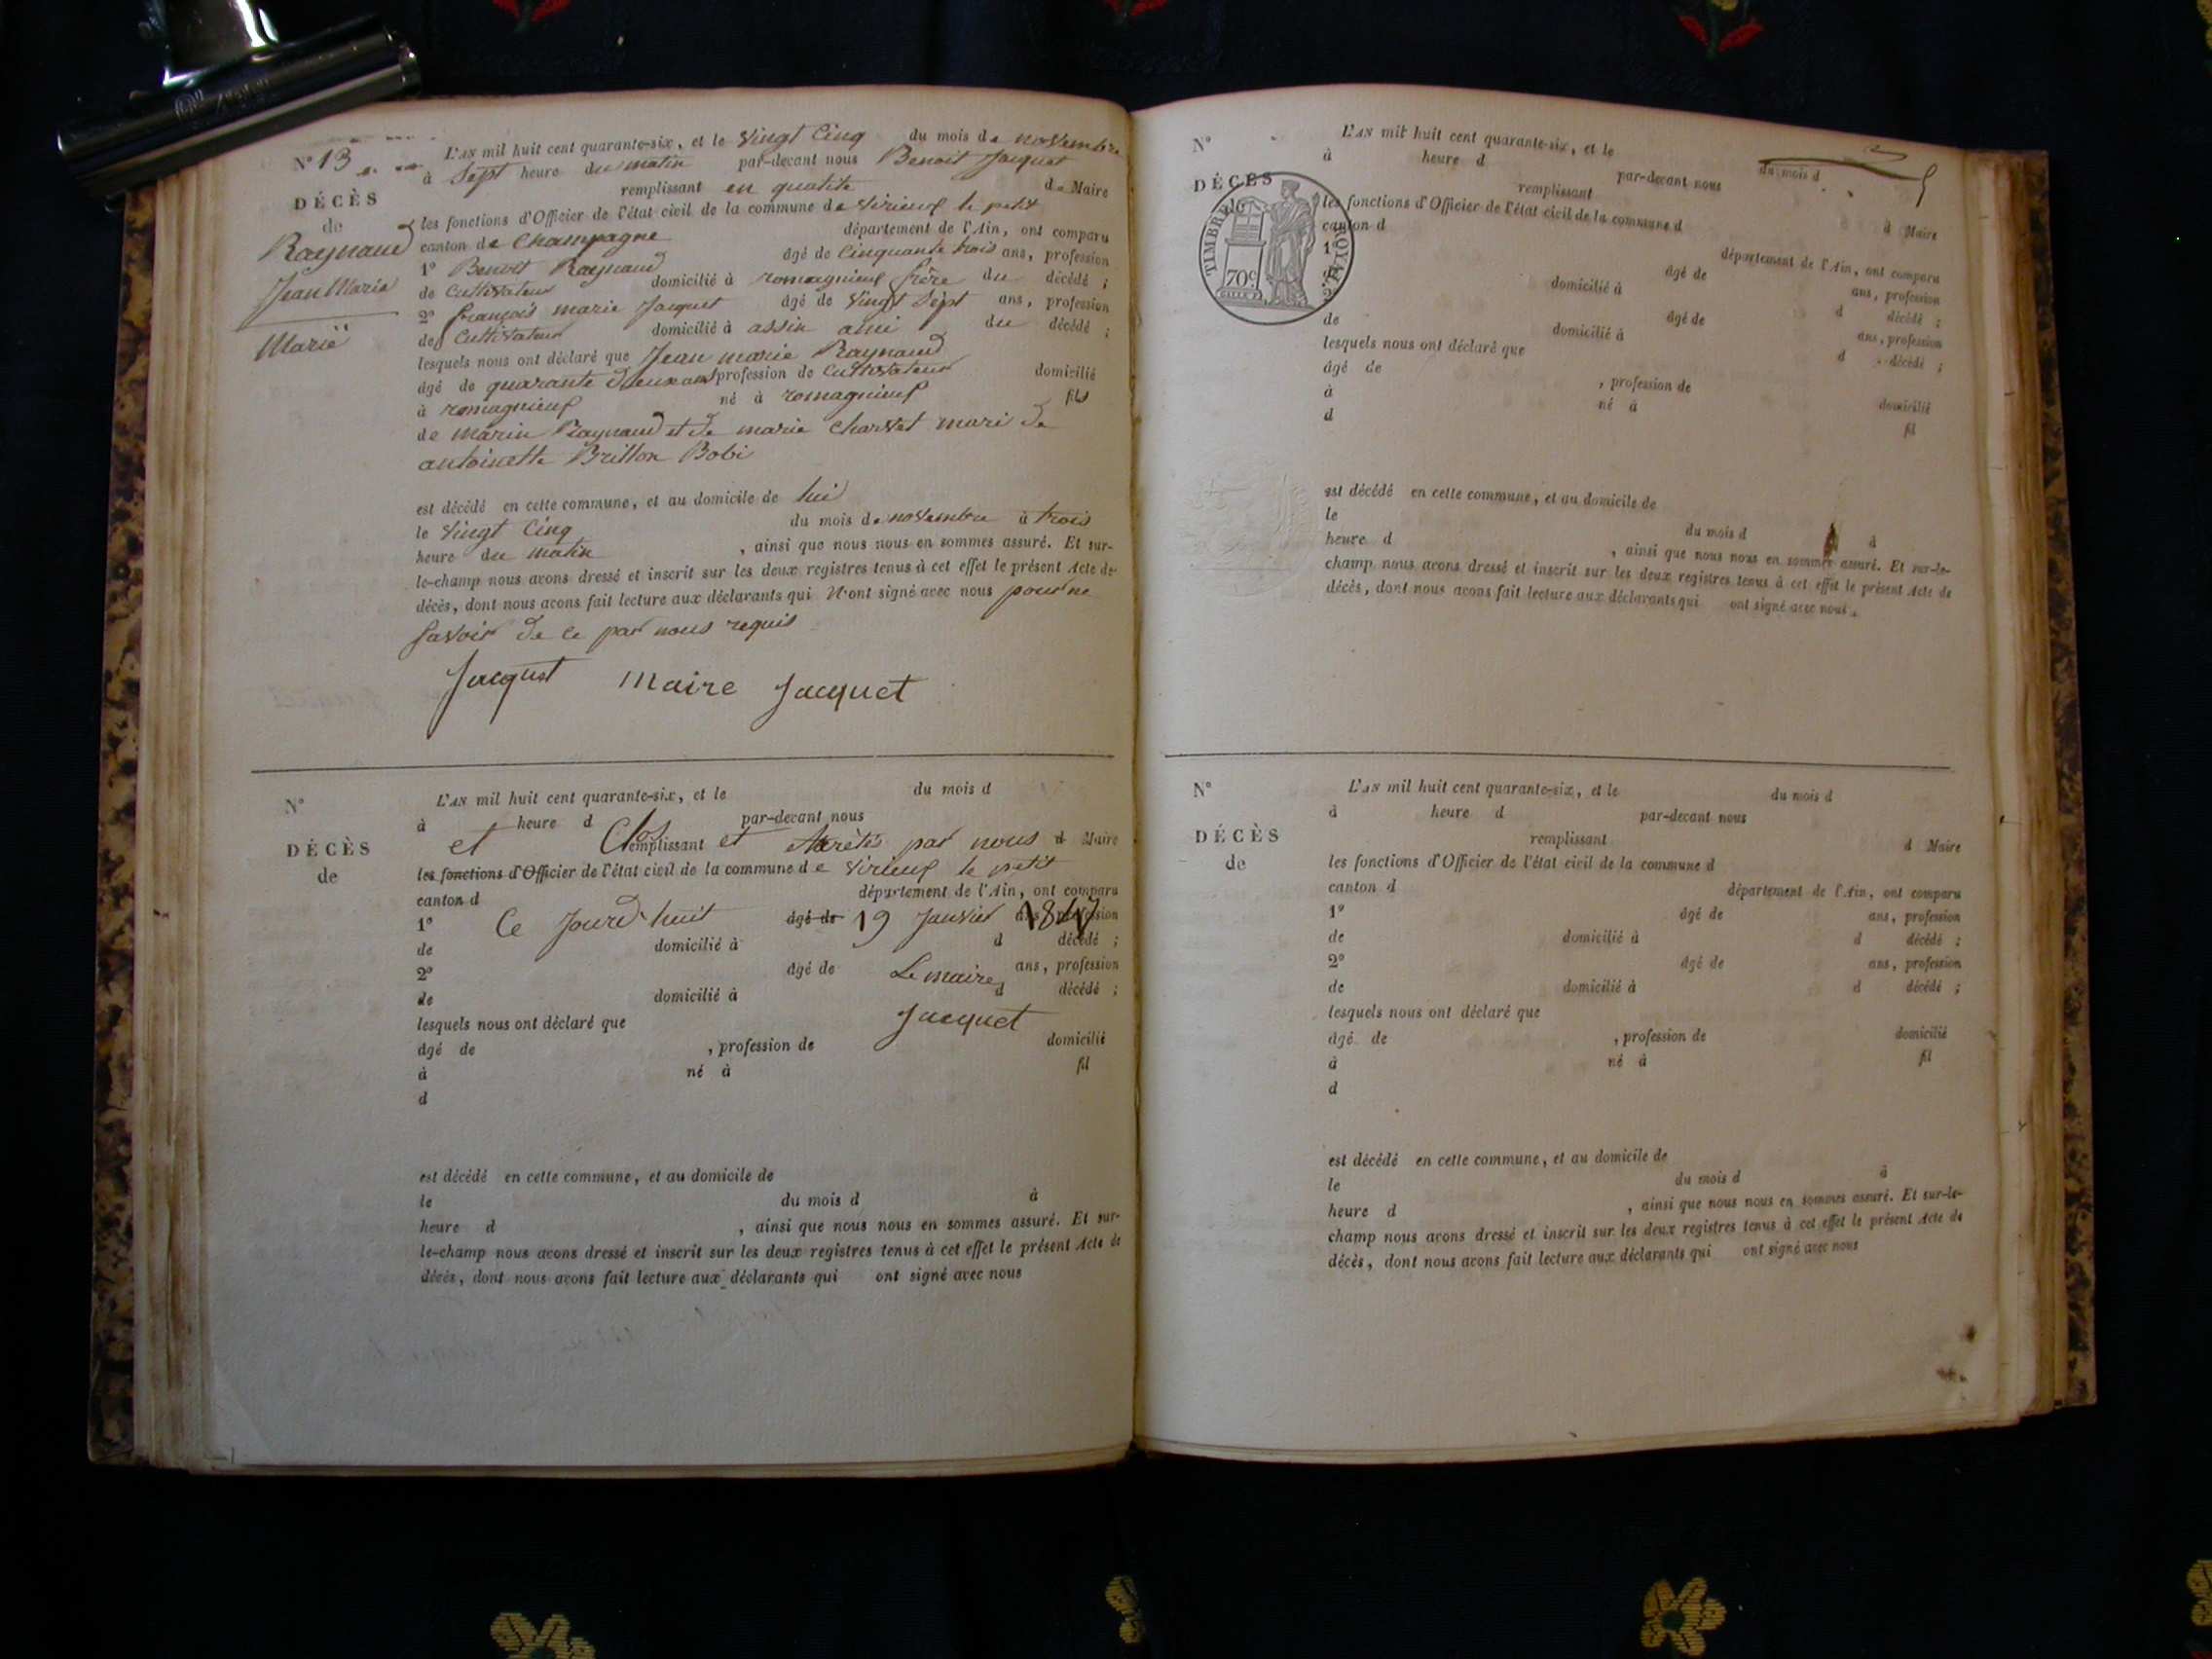 N° 13
DÉCÈS
de
Raynaud
Jean Marie
Marié
L'AN mil huit cent quarante-six, et le vingt Cinq du mois de novembre
à Sept heure du matin par-devant nous Benoit Jacquet
remplissant en qualité de Maire
les fonctions d'Officier de l'état civil de la commune de virieux le petit
canton de Champagne département de l'Ain, ont comparu
1° Benoit Raynaud âgé de Cinquante trois ans, profession
de Cultivateur domicilié à romagnieux frère du décédé ;
2° françois marie Jacquet âgé de vingt Sept ans, profession
de Cultivateur domicilié à assin ami du décédé ;
lesquels nous ont déclaré que Jean marie Raynaud
âgé de quarante deux ans profession de Cultivateur domicilié
à romagnieux né à romagnieux fils
de marin Raynaud et de marie Charvet mari de
antoinette Brillon Bobi
est décédé en cette commune, et au domicile de lui
le vingt Cinq du mois de novembre à trois
heure du matin , ainsi que nous nous en sommes assuré. Et sur-
le-champ nous avons dressé et inscrit sur les deux registres tenus à cet effet le présent Acte de
décès, dont nous avons fait lecture aux déclarants qui n'ont signé avec nous pour ne
savoir de ce par nous requis
Jacquet Maire Jacquet
N°
DÉCÈS
de
L'AN mil huit cent quarante-six, et le du mois d
à heure d par-devant nous
et Clos remplissant et Arrêtés par nous d Maire
les fonctions d'Officier de l'état civil de la commune de virieux le petit
canton d département de l'Ain, ont comparu
1° Ce Jourd'huit âgé de 19 Janvier 1847 ans, profession
de domicilié à d décédé ;
2° âgé de Le maire ans, profession
de domicilié à d décédé ;
lesquels nous ont déclaré que Jacquet
âgé de , profession de domicilié
à né à fil
d
est décédé en cette commune, et au domicile de
le du mois d à
heure d , ainsi que nous nous en sommes assuré. Et sur-
le-champ nous avons dressé et inscrit sur les deux registres tenus à cet effet le présent Acte de
décès, dont nous avons fait lecture aux déclarants qui ont signé avec nous
N°
DÉCÈS
de
TIMBRE ROYAL
70c
L'AN mil huit cent quarante-six, et le du mois d
à heure d par-devant nous
remplissant d Maire
les fonctions d'Officier de l'état civil de la commune d
canton d département de l'Ain, ont comparu
1° âgé de ans, profession
de domicilié à d décédé ;
2° âgé de ans, profession
de domicilié à d décédé ;
lesquels nous ont déclaré que
âgé de , profession de domicilié
à né à fil
d
est décédé en cette commune, et au domicile de
le du mois d à
heure d , ainsi que nous nous en sommes assuré. Et sur-le-
champ nous avons dressé et inscrit sur les deux registres tenus à cet effet le présent Acte de
décès, dont nous avons fait lecture aux déclarants qui ont signé avec nous.
N°
DÉCÈS
de
L'AN mil huit cent quarante-six, et le du mois d
à heure d par-devant nous
remplissant d Maire
les fonctions d'Officier de l'état civil de la commune d
canton d département de l'Ain, ont comparu
1° âgé de ans, profession
de domicilié à d décédé ;
2° âgé de ans, profession
de domicilié à d décédé ;
lesquels nous ont déclaré que
âgé de , profession de domicilié
à né à fil
d
est décédé en cette commune, et au domicile de
le du mois d à
heure d , ainsi que nous nous en sommes assuré. Et sur-le-
champ nous avons dressé et inscrit sur les deux registres tenus à cet effet le présent Acte de
décès, dont nous avons fait lecture aux déclarants qui ont signé avec nous